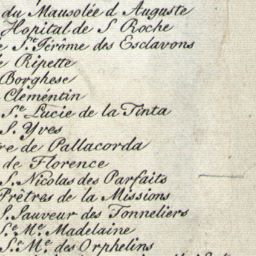 du Mausolée d Auguste
Hopital de S Roche
e St Jérôme des Esclavons
e Ripette
Borghese
Clementin
Ste Lucie de la Tinta
S. Yves
re de Pallacorda
de Florence
S. Nicolas des Parfaits
Prêtres de la Missions
S. Sauveur des Tonneliers
Ste Me Madelaine
Ste Me des Orphelins